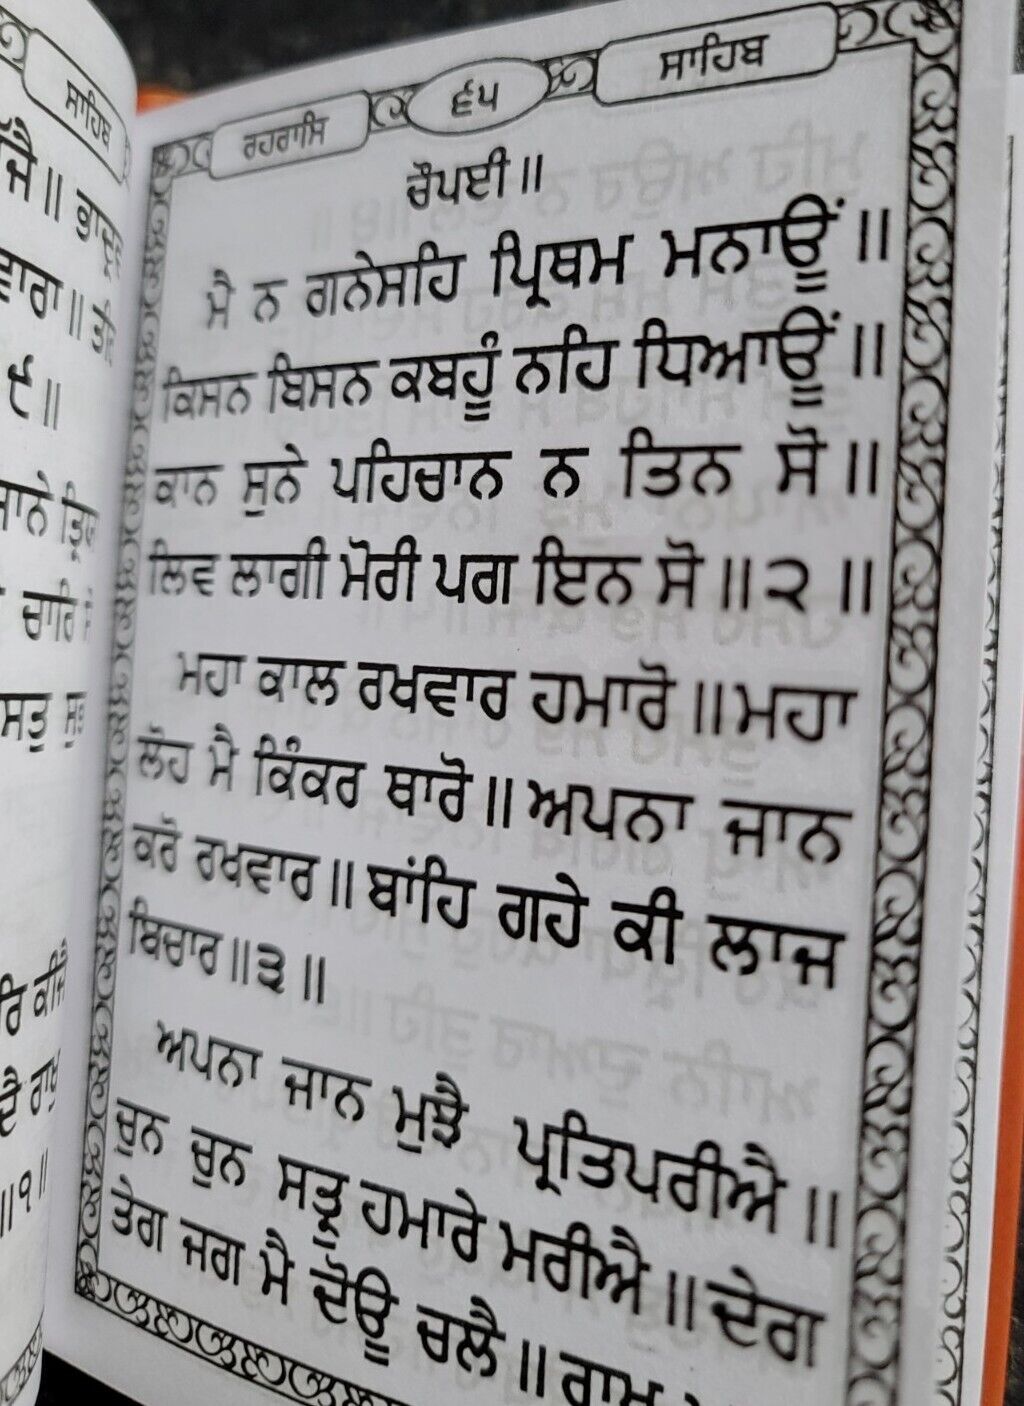 ਸਾਹਿਬ
ਜੈ॥
ਵਾਰਾ॥
੯॥
ਚਾਰਿ
ਸਤੁ
ਰਿ ਕੀਜੈ
॥੧॥
ਰਹਰਾਸਿ ੬੫ ਸਾਹਿਬ
ਚੌਪਈ॥
ਮੈ ਨ ਗਨੇਸਹਿ ਪ੍ਰਿਥਮ ਮਨਾਊਂ॥
ਕਿਸਨ ਬਿਸਨ ਕਬਹੂੰ ਨਹਿ ਧਿਆਊਂ॥
ਕਾਨ ਸੁਨੇ ਪਹਿਚਾਨ ਨ ਤਿਨ ਸੋ॥
ਲਿਵ ਲਾਗੀ ਮੋਰੀ ਪਗ ਇਨ ਸੋ॥੨॥
ਮਹਾ ਕਾਲ ਰਖਵਾਰ ਹਮਾਰੋ॥ਮਹਾ
ਲੋਹ ਮੈ ਕਿੰਕਰ ਥਾਰੋ॥ਅਪਨਾ ਜਾਨ
ਕਰੋ ਰਖਵਾਰ॥ਬਾਂਹਿ ਗਹੇ ਕੀ ਲਾਜ
ਬਿਚਾਰ॥੩॥
ਅਪਨਾ ਜਾਨ ਮੁਝੈ ਪ੍ਰਤਿਪਰੀਐ॥
ਚੁਨ ਚੁਨ ਸਤ੍ਰੁ ਹਮਾਰੇ ਮਰੀਐ॥ਦੇਗ
ਤੇਗ ਜਗ ਮੈ ਦੋਊ ਚਲੈ॥ਰਾਖ